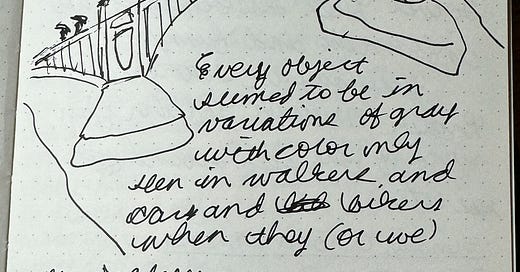 Every object
seemed to be in
variations of gray
with color only
seen in walkers and
cars and bikers
when they (or we)